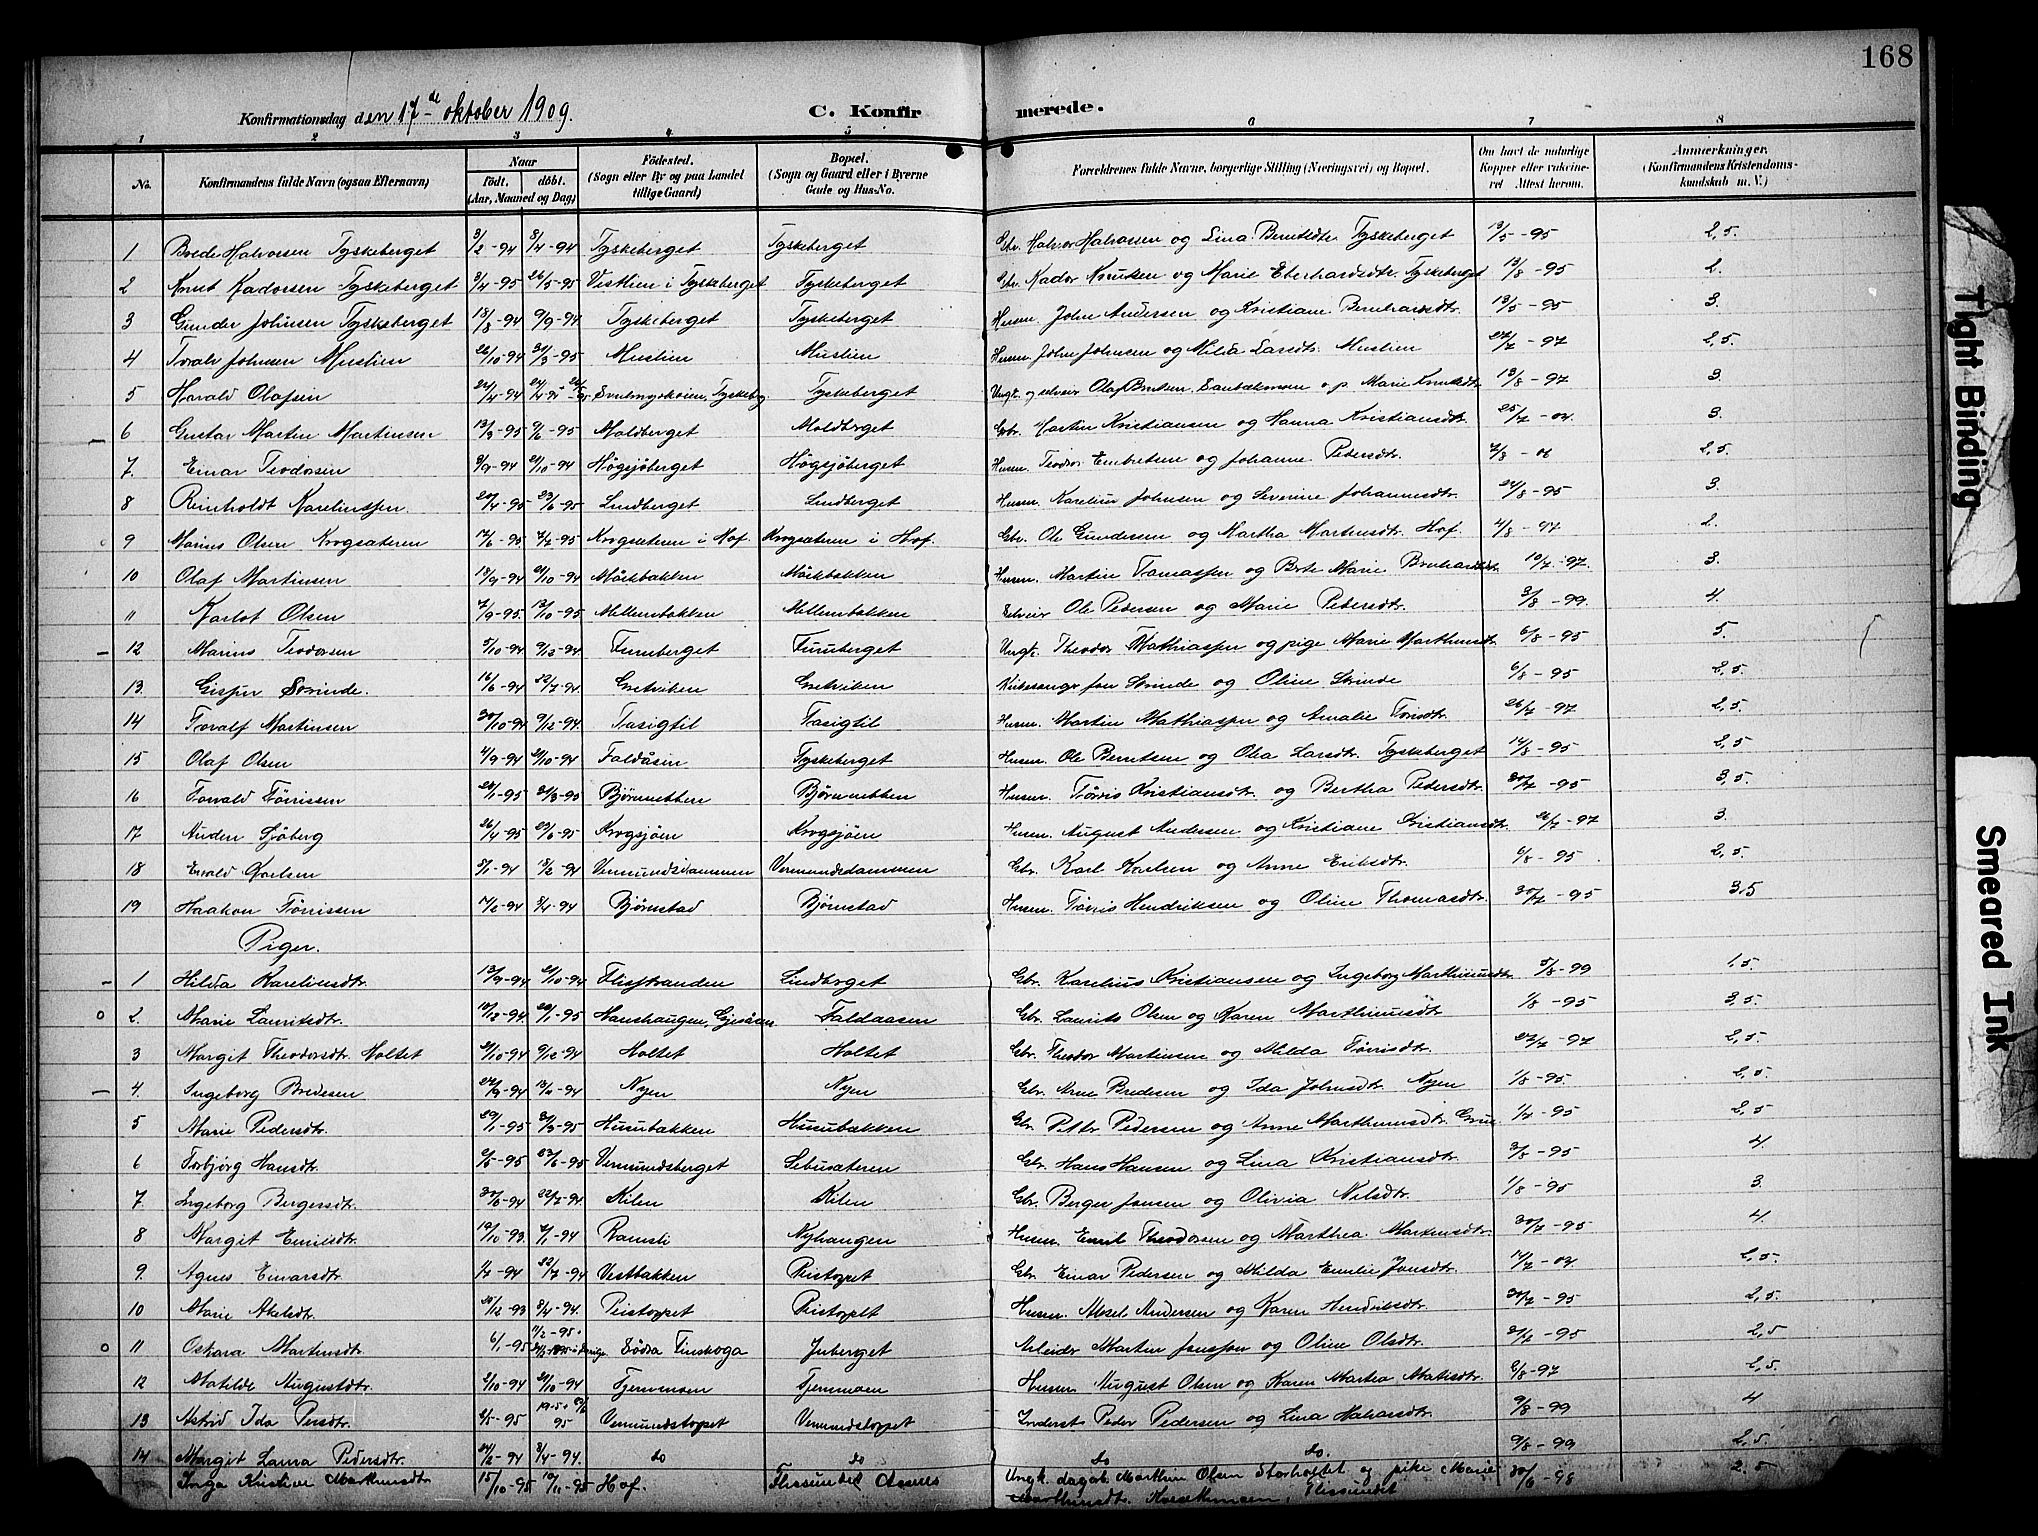 168
Konfirmationsdag den 17de oktober 1909.
C. Konfirmerede.
1 2 3 4 5 6 7 8
No. Konfirmandens fulde Navn (ogsaa Efternavn) Naar födt. döbt. (Aar, Maaned og Dag) Födested. (Sogn eller By og paa Landet tillige Gaard) Bopæl. (Sogn og Gaard eller i Byerne Gade og Hus-No. Forældrenes fulde Navne, borgerlige Stilling (Næringsvei) og Bopæl. Om havt de naturlige Kopper eller vakcineret Attest herom. Anmærkninger. (Konfirmandens Kristendomskundskab m. V.)
1 Brede Halvorsen Tyskeberget 3/2-94 8/4-94 Tyskeberget Tyskeberget Gbr. Halvor Halvorsen og Lina Berntsdtr. Tyskeberget 13/5-95 2,5.
2 Knut Kadorsen Tyskeberget 3/4-95 26/5-95 Vestlien i Tyskeberget Tyskeberget Gbr. Kador Knutsen og Marie Eberhardsdtr. Tyskeberget 13/8-95 2.
3 Gunder Johnsen Tyskeberget 18/8-94 9/9-94 Tyskeberget Tyskeberget Husm. John Andersen og Kristiane Bernhardsdtr. 13/5-95 3.
4 Toralv Johnsen Muslien 26/10-94 31/3-95 Muslien Muslien Husm. John Johnsen og Milda Larsdtr. Muslien 27/7-97 2,5.
5 Harald Olafsen 22/4-94 Tyskeberget Ungk. og selveier Olaf Berntsen, o.p. Marie Knutsdtr. 13/8-97 3.
6 Gustav Martin Martinsen 13/3-95 9/6-95 Moldberget Moldberget Gbr. Martin Kristiansen og Hanna Kristiansdtr. 25/7-02 3.
7. Einar Teodorsen 3/9-94 21/10-94 Högsjöberget Högsjöberget Husm. Teodor Embretsen og Johanne Pedersdtr. 2,5.
8 Reinholdt Kareliussen. 20/4-95 23/6-95 Lindberget Lindberget Husm. Karelius Johnsen og Severine Johannesdtr. 24/8-95 3.
9 Marius Olsen Krogsæteren 17/6-95 7/7-95 Krogsæteren i Hof. Krogsæteren i Hof. Gbr. Ole Gundersen og Martha Martinsdtr. Hof. 4/8-97 2.
10 Olaf Martinsen 18/9-94 21/10-94 Mörkbakken Mörkbakken Husm. Martin Tomassen og Berte Marie Bernhardsdtr. 10/7-97. 3.
11 Karlot Olsen 7/9-95. 13/10-95 Mellembakken Mellembakken Selveier Ole Pedersen og Marie Pedersdtr. 3/8-99. 4.
12 Marius Teodorsen 5/10-94 9/12-94 Furuberget Furuberget Ungk. Theodor Mathiassen og pige Marie Marthinsdtr. 6/8-95 5.
13. Gisper Strinde. 16/6-94 22/7-94. Gretviken Gretviken Kirkesanger Jon Strinde og Oline Strinde 6/8-95 2,5.
14 Toralf Martinsen 30/10-94 9/12-94. Tasigtil Tasigtil Husm. Martin Mathiassen og Amalie Törrisdtr. 26/7-97 2,5.
15 Olaf Olsen 4/9-94 21/10-94 Faldåsen Tyskeberget Husm. Ole Berntsen og Olea Larsdtr. Tyskeberget 14/8-95 2,5
16 Torvald Törrissen 28/1-95 31/3-95 Björnnebben Björnnebben Husm. Törris Kristiansdtr. og Bertha Pedersdtr. 30/7-95 3,5
17 Auden Sjöberg 26/4-95 23/6-95 Krogsjöen Krogsjöen Husm. August Andersen og Kristiane Kristiansdtr. 26/7-97 3.
18 Evald Karlsen 5/1-94 18/2-94 Vermundsdammen Vermundsdammen Gbr. Karl Karlsen og Anne Eriksdtr. 6/8-95 2,5.
19 Haakon Törrissen 17/2-94 8/4-94 Björnstad Björnstad Husm. Törris Hendriksen og Oline Thomasdtr. 30/7-95 3,5
Piger.
1 Hilda Kareliusdtr. 13/9-94 21/10-94 Flisstranden Lindberget Gbr. Karelius Kristiansen og Ingeborg Marthinusdtr. 5/8-99 1,5.
2. Marie Lauritsdtr. 10/12-94. 20/1-95 Hanshaugen, Gjesåsen Faldaasen Gbr. Laurits Olsen og Karen Marthinusdtr 1/8-95 3,5.
3 Margit Theodorsdtr. Holtet 21/10-94 9/12-94 Holtet Holtet Gbr. Theodor Martinsen og Milda Törrisdtr. 27/7-97 2,5.
4. Ingeborg Bredesen Nyen Nyen Gbr. Arne Bredesen og Ida Johnsdtr. Nyen 1/8-95. 2,5
5 Marie Pedersdtr. 29/1-95 31/3-95 Husubakken Husubakken Gbr. Petter Pedersen og Anne Marthinusdtr. Grue 1/7-95 2,5
6 Torbjörg Hansdtr. 2/5-95 23/6-95 Vermundsberget Sebusæteren Gbr. Hans Hansen og Lina Kristiansdtr. 3/8-95 4
7. Ingeborg Bergersdtr. 30/6-94 22/7-94. Kilen Kilen Gbr. Berger Jonsen og Olivia Nilsdtr. 1/8-95 3.
8 Margit Emilsdtr. 19/10-93. 7/1-94 Ramsli Nyhaugen Husm. Emil Theodorsen og Marthea Martinsdtr. 30/7-95 4.
9. Agnes Einarsdtr. 1/7-94 22/7-94 Vestbakken Peistorpet Gbr. Einar Pedersen og Milda Emilie Jonsdtr. 17/7-02. 2,5.
10 Marie Akselsdtr. 25/12-93 8/4-94. Peistorpet Peistorpet Husm. Aksel Andersen og Karen Hendriksdtr. 30/7-95 2,5.
11 Oskara Martinsdtr. 6/1-95 11/2-95 Södra Finskoga Juberget Arbeider Martin Jonsson og Oline Olsdtr. 2/7-95 2,5
12 Matilde Augustdtr. 2/10-94 21/10-94 Tjernmoen Tjernmoen Husm. August Olsen og Karen Martea Matisdtr. 2/8-97 2,5.
13 Astrid Ida Persdtr. 2/5-95 Vermundstorpet Vermundstorpet Inderst Peder Pedersen og Lina Halvorsdtr. 9/8-99 4
14 Margit Laura Pedersdtr. 8/4-94. do do do do. 9/8-99 2,5.
Inga Kristine Marthinusdtr 15/10-95 10/11-95 Hof. Flissundet Aasnes Ungk. dagarb. Marthin Olsen Storholtet og pike Marie 30/6-98 2.5
Marthinusdtr. Flissundet
Tight Binding
Smeared Ink